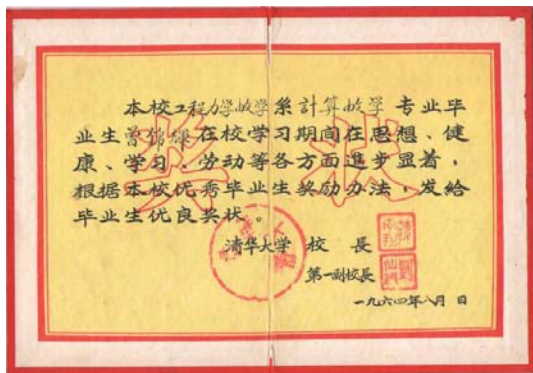 奖状
本校工程力学数学系計算数学专业毕
业生曾锦㷧在校学习期间在思想、健
康、学习、劳动等各方面進步显着，
根据本校优秀毕业生奖励办法，发给
毕业生优良奖状。
清华大学 校 長
第一副校長
一九六四年八月 日